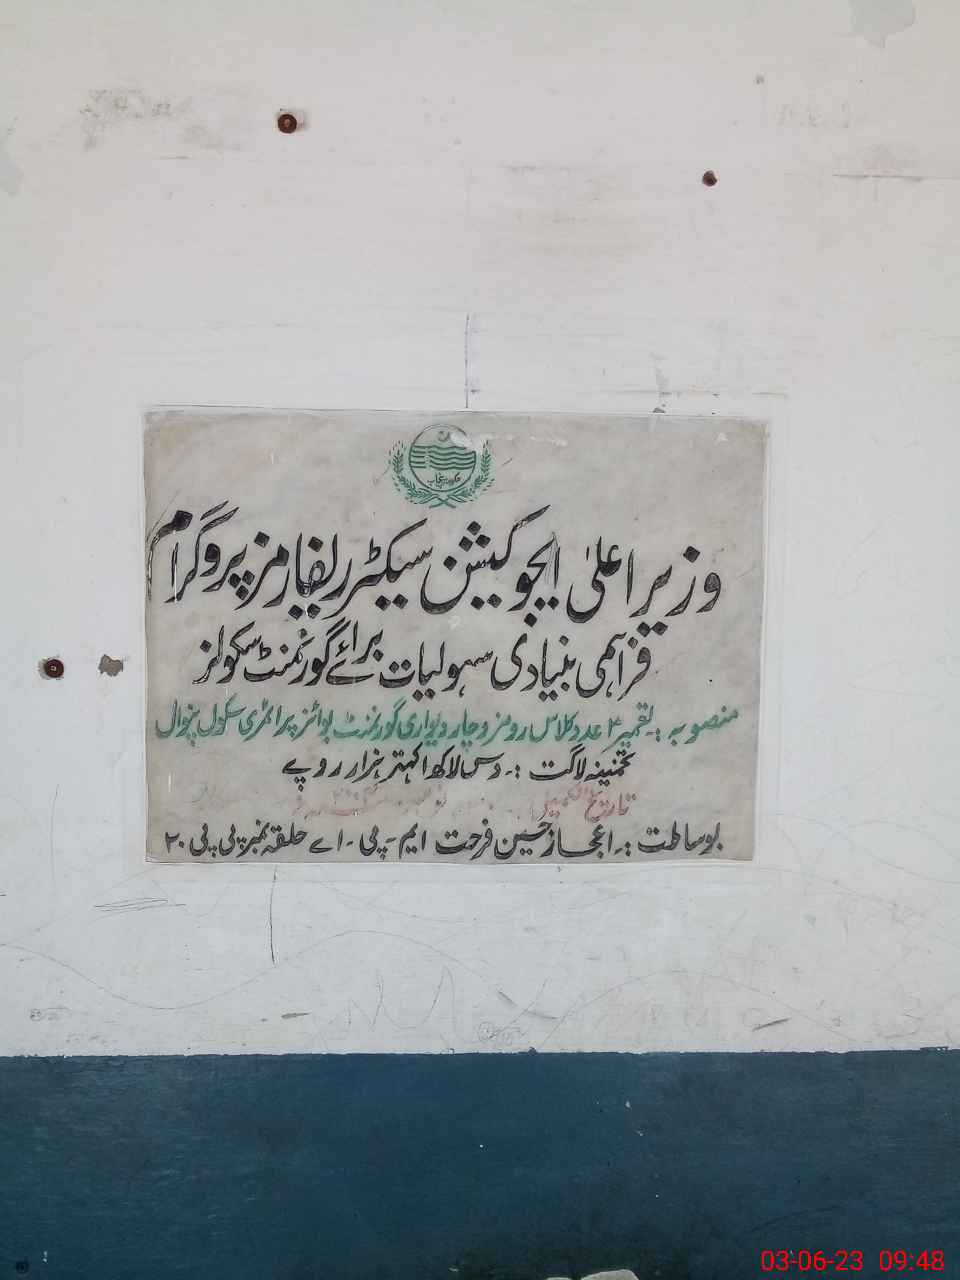 حکومت پنجاب
وزیر اعلیٰ ایجوکیشن سیکٹر ریفارمز پروگرام
فراہمی بنیادی سہولیات برائے گورنمنٹ سکولز
منصوبہ :۔ تعمیر ۲ عدد کلاس رومز و چار دیواری گورنمنٹ بوائز پرائمری سکول پنوال
تخمینہ لاگت :۔ دس لاکھ اکہتر ہزار روپے
تاریخ تکمیل
بوساطت :۔ اعجاز حسین فرحت ایم۔پی۔اے حلقہ نمبر پی پی ۲۰
03-06-23 09:48